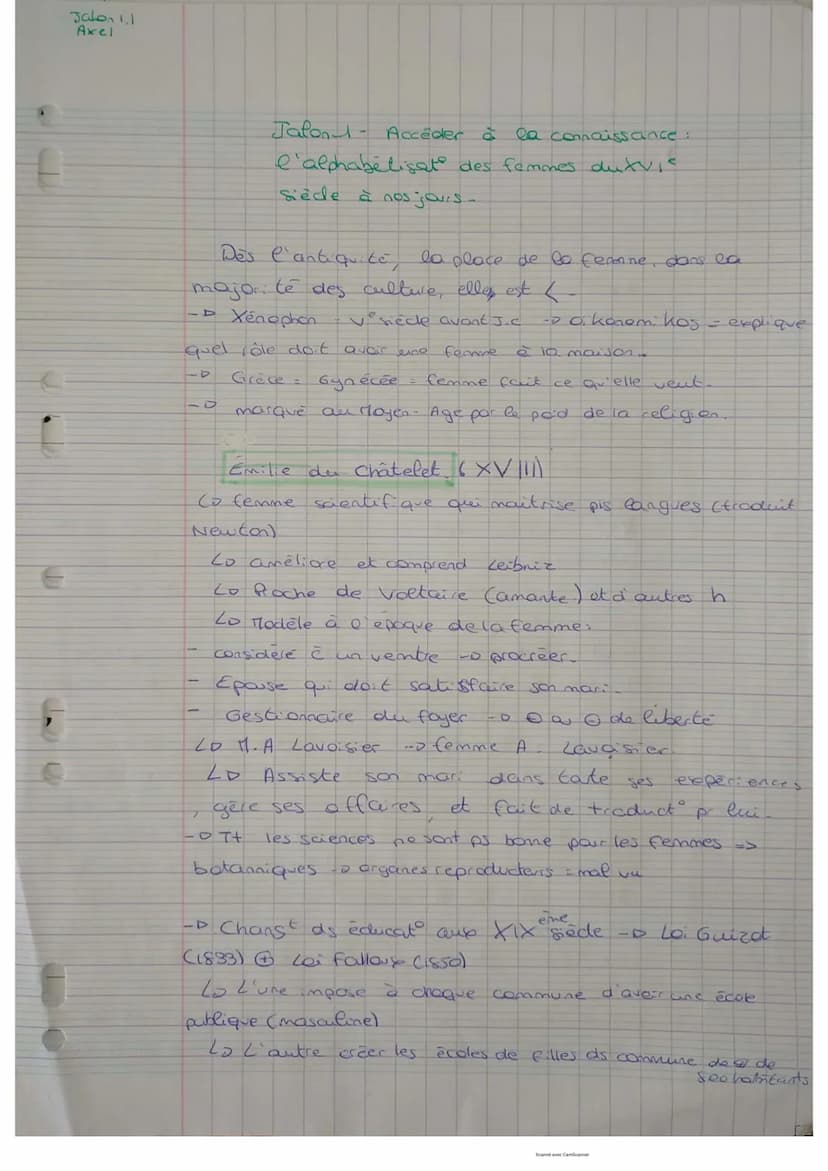 Jalon 1.1
Axel
Jalon 1 - Accéder à la connaissance :
l'alphabétisat° des femmes du XVIe
siècle à nos jours -
Dès l'antiquité, la place de la femme, dans la
majorité des culture, elles est < -
-> Xénophon - Ve siècle avant J.C -> Oikonomikos = explique
quel rôle doit avoir une femme à la maison -
-> Grèce = Gynécée = femme fait ce qu'elle veut -
-> marqué au Moyen-Age par le poid de la religion.
Émilie du Châtelet (XVIII)
↳ femme scientifique qui maitrise pls langues (traduit
Newton)
↳ améliore et comprend Leibniz
↳ Proche de Voltaire (amante) et d'autres h
↳ Modèle à l'époque de la femme :
- considéré ĉ un ventre -> procréer -
- Epouse qui doit satisfaire son mari -
- Gestionnaire du foyer -> ⊖ ou ⊖ de liberté
↳ M.A Lavoisier -> femme A. Lavoisier
↳ Assiste son mari dans toute ses expériences
, gère ses affaires et fait de traduct° pr lui -
-> Tt les sciences ne sont ps bonne pour les femmes =>
botanniques -> organes reproducteurs = mal vu
-> Changt ds éducat° aux XIXème siècle -> Loi Guizot
(1833) ⊕ Loi Falloux (1850)
↳ L'une impose à chaque commune d'avoir une école
publique (masculine)
↳ L'autre créer les écoles de filles ds commune de ⊕ de
800 habitants
Scanné avec CamScanner